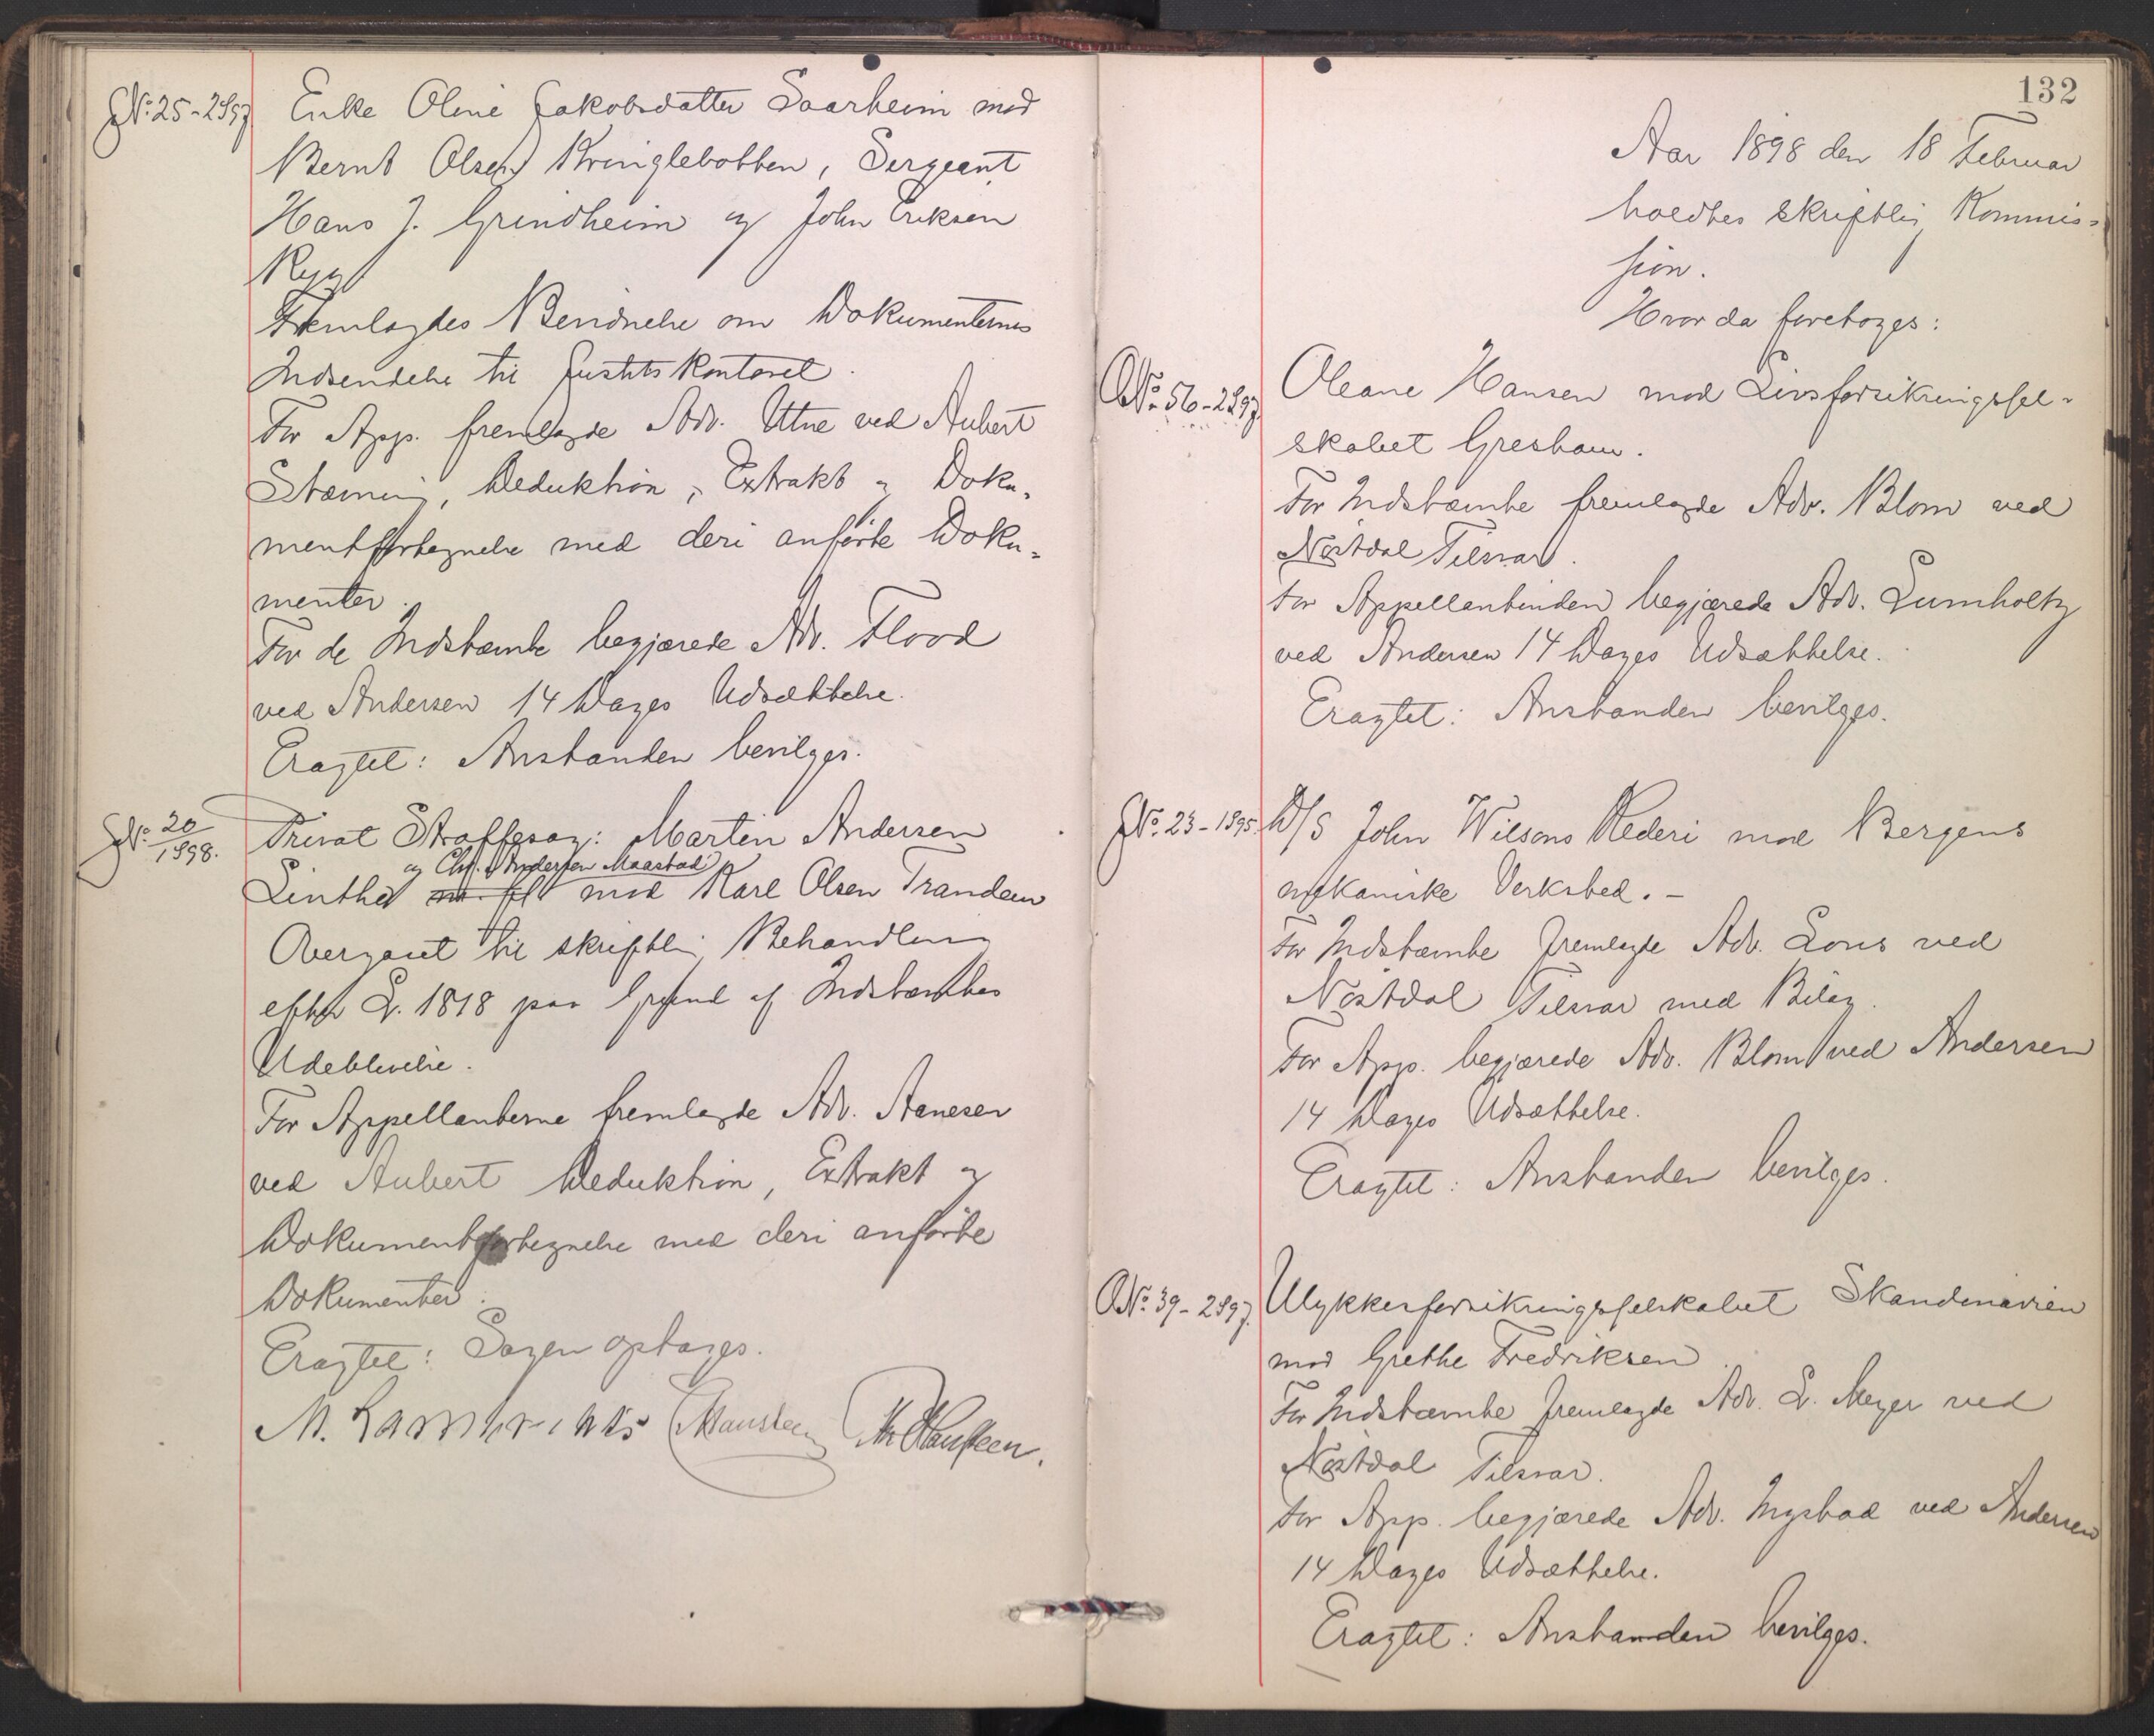 No. 25-2/97 Enke Oline Jakobsdatter Saarheim mod
Bernt Olsen Kringlebotten, Sergeant
Hans J. Grindheim og John Eriksen
Rygg
Fremlagdes Bevidnelse om Dokumenternes
Indsendelse til Justitskontoret.
For App. fremlagde Adv. Utne ved Aubert
Stævning, Deduktion, Extrakt og Doku-
mentfortegnelse med deri anførte Doku-
menter.
For de Indstævnte begjærede Adv. Flood
ved Andersen 14 Dages Udsættelse.
Eragtet: Anstanden bevilges.
No. 20/1898. Privat Straffesag: Martin Andersen
og Chr. Andersen Maastad
Linthei mod Karl Olsen Trandem
Overgaaet til skriftlig Behandling
efter L. 1818 paa Grund af Indstævntes
Udeblivelse.
For Appellanterne fremlagde Adv. Aanesen
ved Aubert Deduktion, Extrakt og
Dokumentfortegnelse med deri anførte
Dokumenter.
Eragtet: Sagen optages.
M. Lambrechts Hansteen
132
Aar 1898 den 18 Februar
holdtes skriftlig Kommis-
sion.
Hvor da foretoges:
No. 56-2/97 Oleane Hansen mod Livsforsikringssel-
skabet Gresham.
For Indstævnte fremlagde Adv. Blom ved
Nøstdal Tilsvar.
For Appellantinden begjærede Adv. Lumholtz
ved Andersen 14 Dages Udsættelse.
Eragtet: Anstanden bevilges.
No. 23-1895 D/S John Wilsons Rederi mod Bergens
mekaniske Verksted.-
For Indstævnte fremlagde Adv. Lous ved
Nøstdal Tilsvar med Bilag.
For App. begjærede Adv. Blom ved Andersen
14 Dages Udsættelse.
Eragtet: Anstanden bevilges.
No. 39-2/97. Ulykkesforsikringsselskabet Skandinavien
mod Grethe Fredriksen.
For Indstævnte fremlagde Adv. L. Meyer ved
Nøstdal Tilsvar.
For App. begjærede Adv. Mygstad ved Andersen
14 Dages Udsættelse.
Eragtet: Anstanden bevilges.